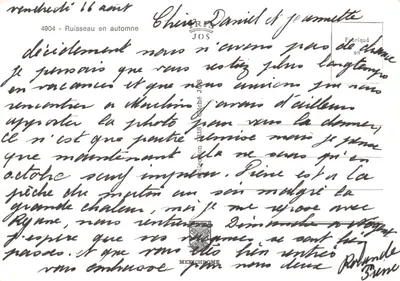 vendredi 16 aout
Chers Daniel et jeannette
4904 - Ruisseau en automne
JOS
Fabriqué
décidement nous n'avons pas de chance
je pensais que vous restiez plus longtemps
en vacances et que nous aurions pu nous
rencontrer a j'avais d'ailleurs
apporter la photo pour vous la donner,
ce n'est que partie remise mais je pense
que maintenant cela ne sera qu'en
octobre sauf imprévu. Pierre est a la
pêche du matin au soir malgré la
grande chaleur, moi je me repose avec
nous rentrerons Dimanche a
j'espère que vos vacances se sont bien
passées et que vous êtes bien rentrés
vous embrasse pour nous deux
Rolande
Pierre